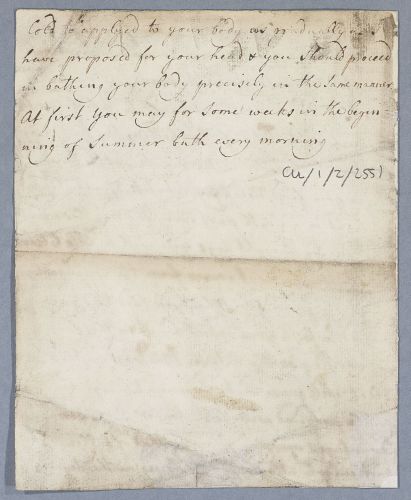 Cold is applyed to your body as gradually as I
have proposed for your head & you should proceed
in bathing your body precisely in the same manner.
At first you may for some weeks in the begin
ning of Summer bath every morning
CU/1/2/2551